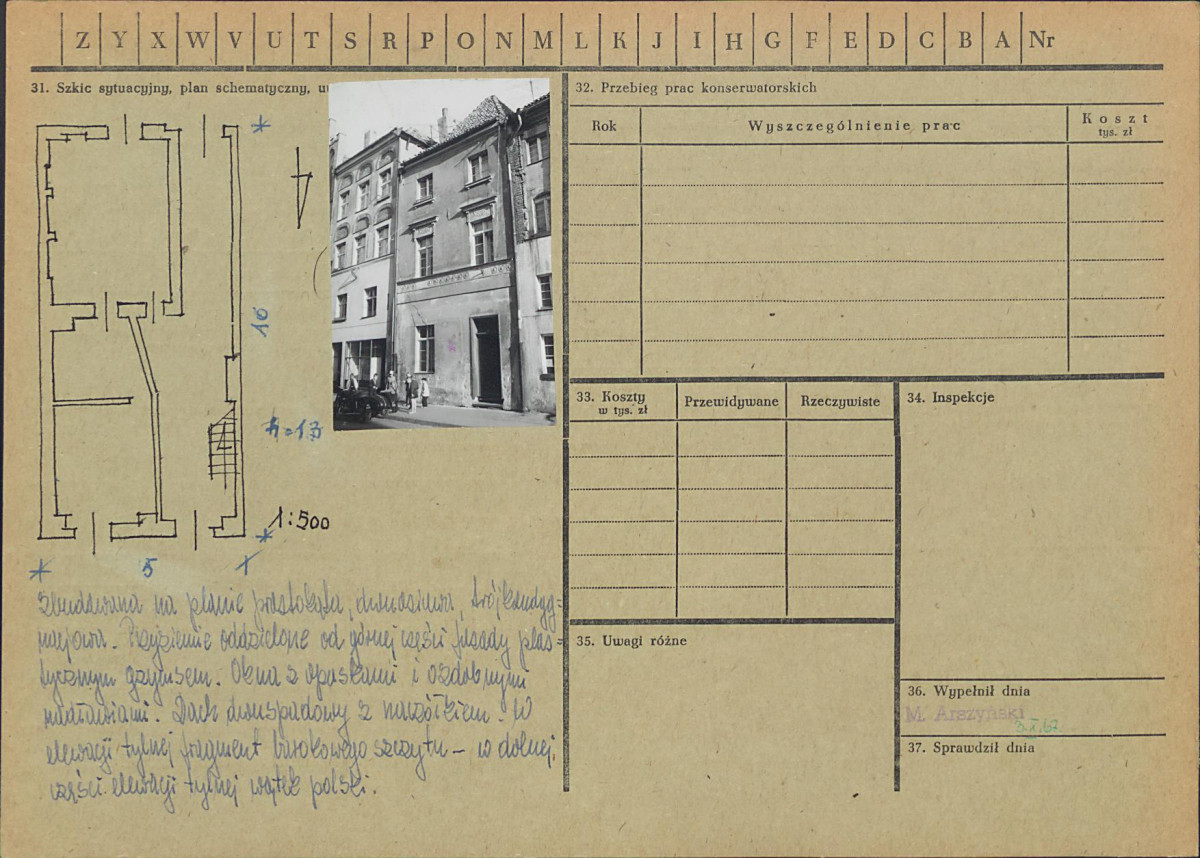 Z Y X W V U T S R P O N M L K J I H G F E D C B A Nr
31. Szkic sytuacyjny, plan schematyczny, u
16
h=13
1:500
5
Zbudowana na planie prostokąta, dwuosiowa, trójkondyg=
nacjowa. Przyziemie oddzielone od górnej części fasady plas=
tycznym gzymsem. Okna z opaskami i ozdobnymi
nadławiami. Dach dwuspadowy z naczółkiem. W
elewacji tylnej fragment barokowego szczytu – w dolnej
części elewacji tylnej wątek polski.
32. Przebieg prac konserwatorskich
Rok
Wyszczególnienie prac
Koszt
tys. zł
33. Koszty
w tys. zł
Przewidywane
Rzeczywiste
34. Inspekcje
35. Uwagi różne
36. Wypełnił dnia
M. Arszyński
37. Sprawdził dnia